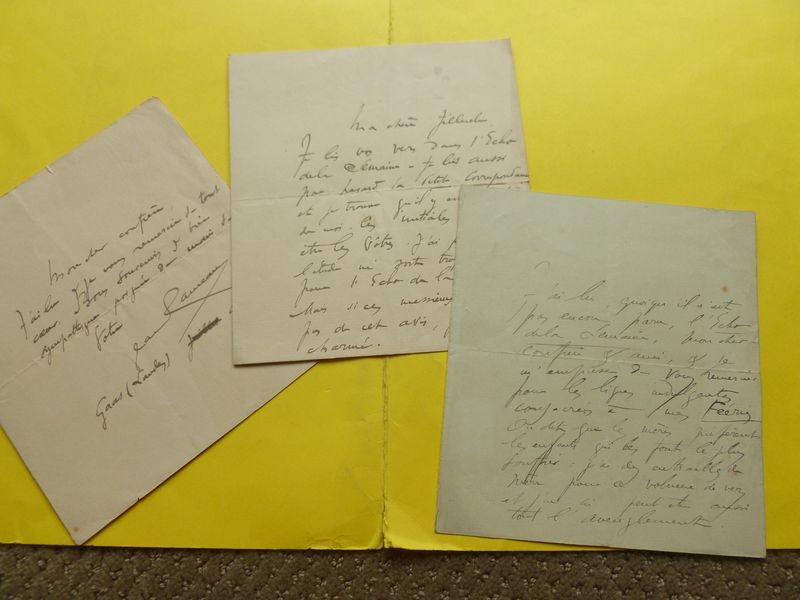 Mon cher confrère,
J'ai lu. Et je vous remercie de tout
cœur. Bons souvenirs & bien
sympathique poignée de main de
votre
Jean Rameau
Gaas (Landes)
Mon cher
Je lis vos vers dans l'Echo
de la Semaine. Je lis aussi
par hasard la Petite Correspondance
et je trouve qu'il y
de moi. Les initiales
être les vôtres. J'ai
l'étude
pour l'Echo de la
Mais si ces messieurs
pas de cet avis,
charmé.
J'ai lu, quoiqu'il n'ait
pas encore paru, l'Echo
de la Semaine, mon cher
confrère & ami, & je
m'empresse de vous remercier
pour les lignes indulgentes
consacrées à mes Féeries
On dit que les mères préfèrent
les enfants qui les font le plus
souffrir: j'ai des entrailles de
mère pour ce volume de vers
et j'en ai peut-être aussi
tout l'aveuglement.